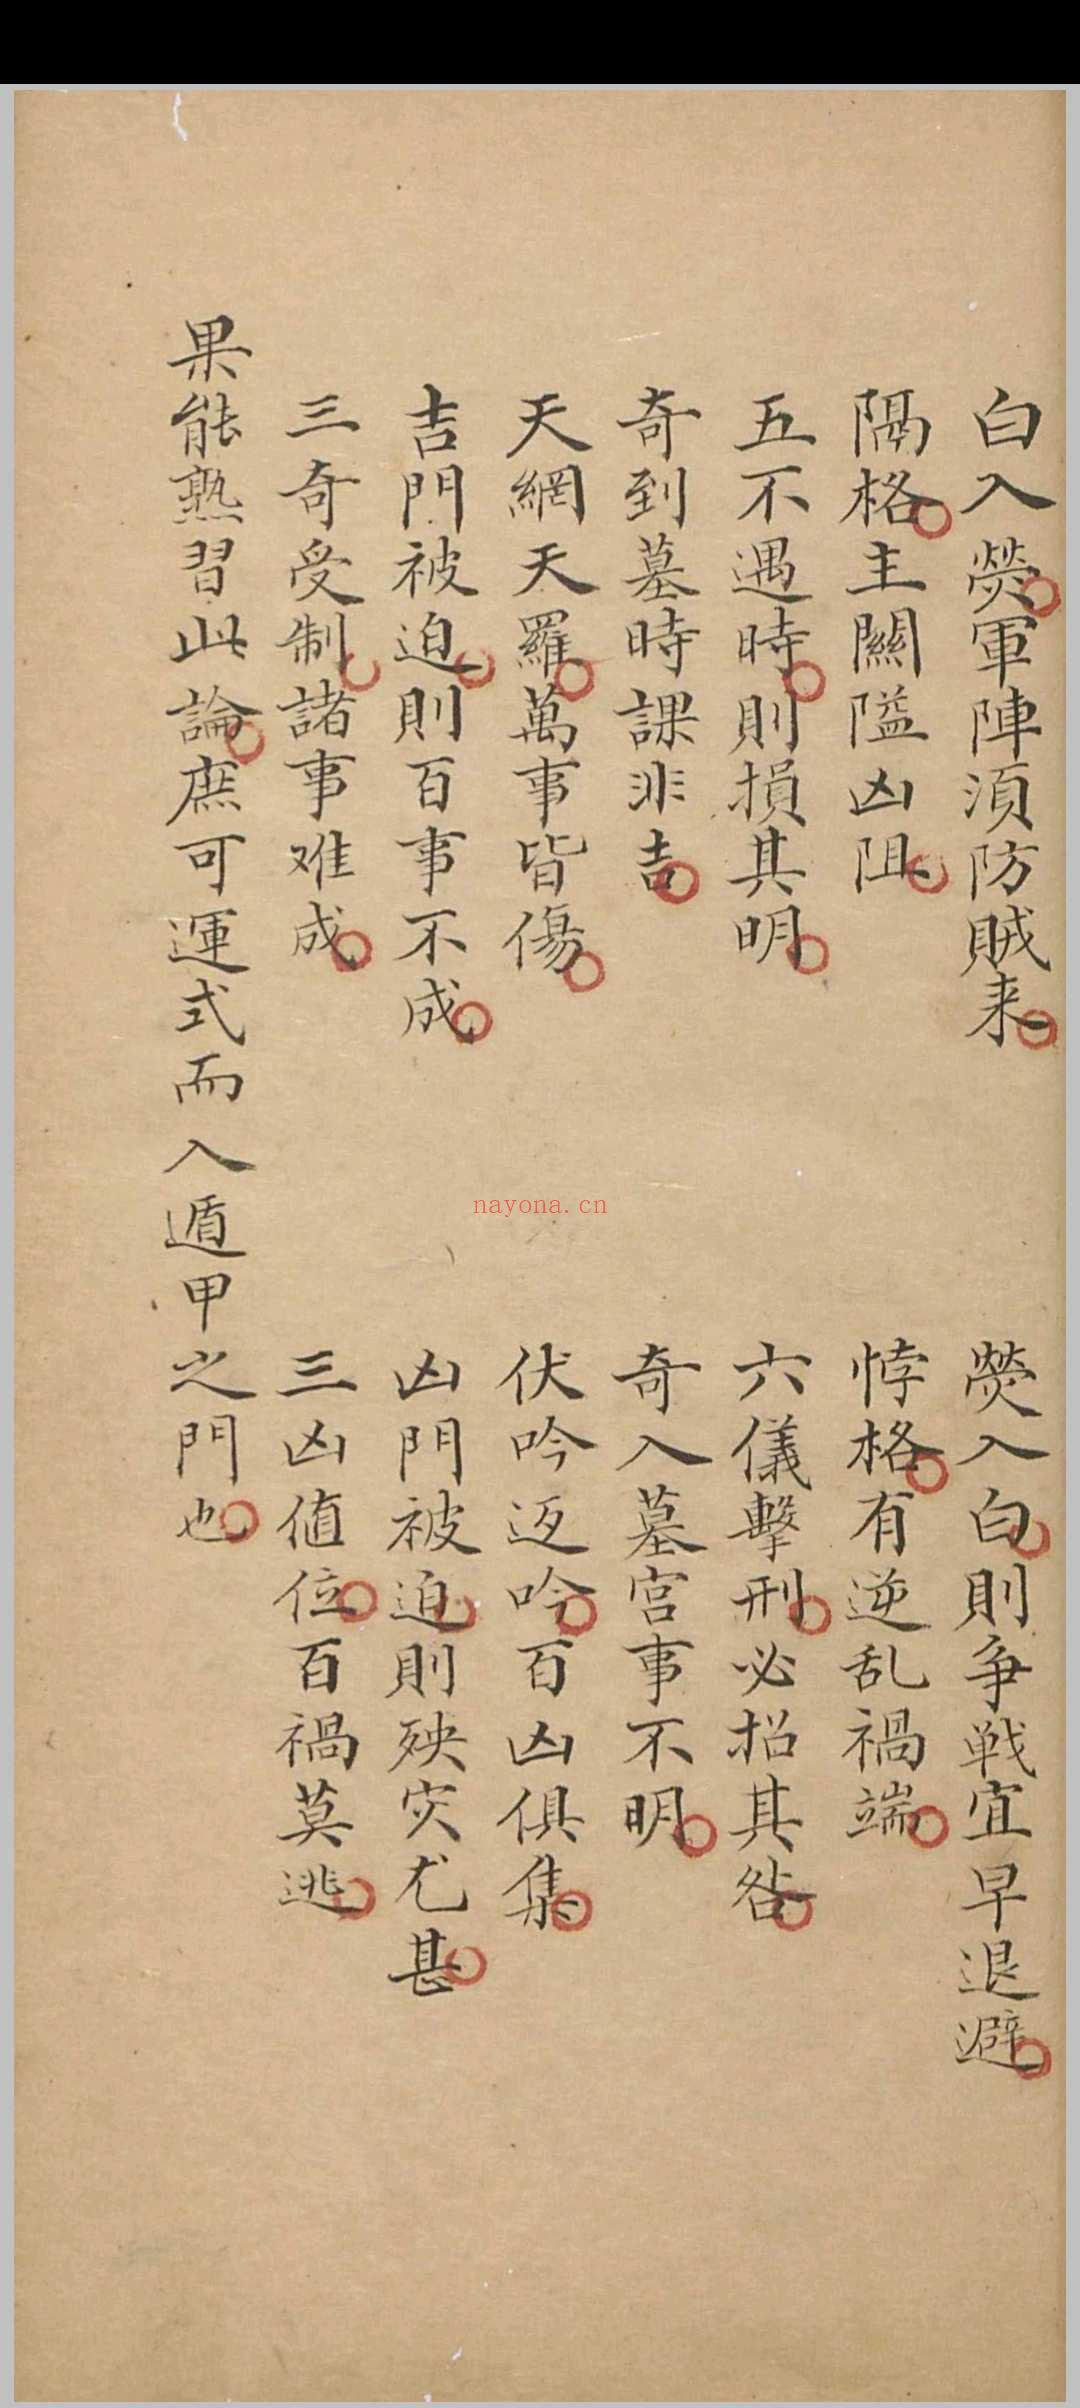 白入熒軍陣須防賊来
熒入白則争戦宜早退避
隔格主關隘凶阻
悖格有逆乱禍端
五不遇時則損其明
六儀擊刑必招其咎
奇到墓時課非吉
奇入墓宮事不明
天網天羅萬事皆傷
伏吟返吟百凶俱集
吉門被迫則百事不成
凶門被迫則殃灾尤甚
三奇受制諸事难成
三凶值位百禍莫逃
果能熟習此論庶可運式而入遁甲之門也
nayona.cn